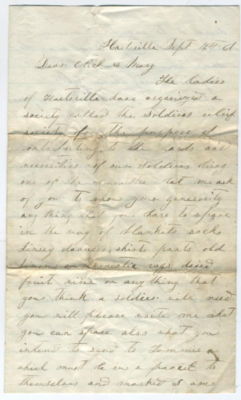 Sept 14th 61
Dear Alick & Mary
The Ladies
of have organized a
society called the Soldiers relief
society for the purpose of
contributing to the wants and
necessities of our Soldiers
one of the committee ask
of you to your generosity
any thing that you have to spare
in the way of Blankets socks
shirts pants old
rags dried
fruit or any thing that
you think a soldier will need
you will please write me what
you can spare also what you
intend to send to Tommie
which must be in a parcel to
themselves and marked